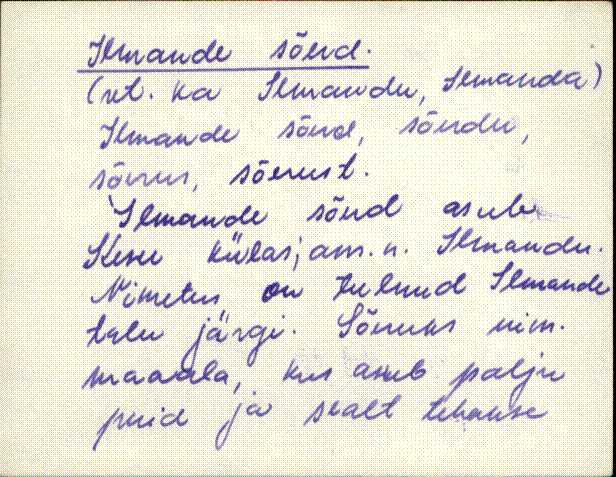 Ilmande sõrd.
(vt. ka Ilmandu, Ilmanda)
Ilmande sõrd, sõrdu,
sõrus, sõrust.
Ilmande sõrd asub
külas, am. n. Ilmandu.
Nimetus on tulnud Ilmande
talu järgi. Sõruks nim.
maaala, kus asub palju
puid ja sealt tehakse